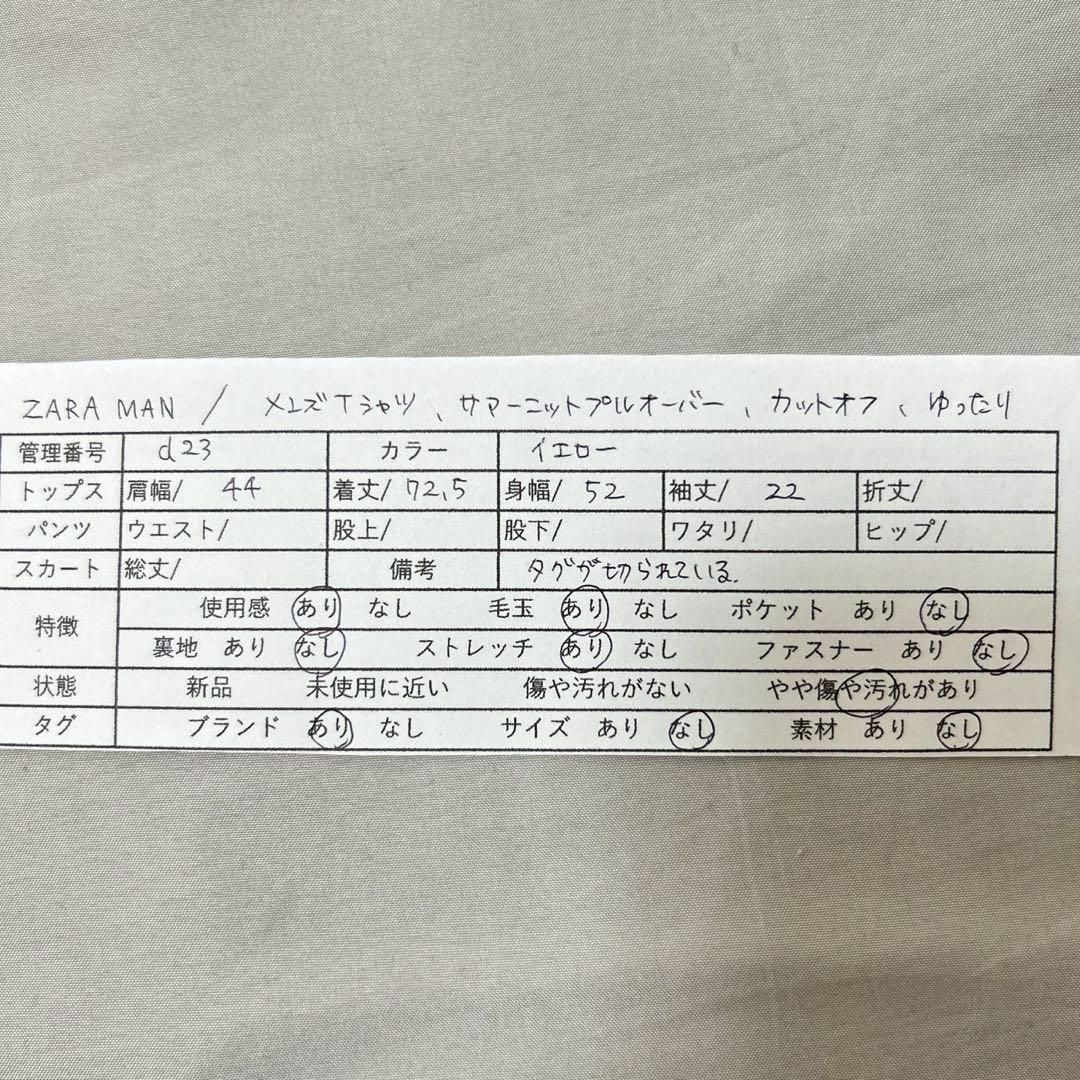 ZARA MAN / メンズTシャツ、サマーニットプルオーバー、カットオフ、ゆったり
管理番号 d23 カラー イエロー
トップス 肩幅/ 44 着丈/ 72.5 身幅/ 52 袖丈/ 22 折丈/
パンツ ウエスト/ 股上/ 股下/ ワタリ/ ヒップ/
スカート 総丈/ 備考 タグが切られている。
特徴 使用感 あり なし 毛玉 あり なし ポケット あり なし
裏地 あり なし ストレッチ あり なし ファスナー あり なし
状態 新品 未使用に近い 傷や汚れがない やや傷や汚れがあり
タグ ブランド あり なし サイズ あり なし 素材 あり なし